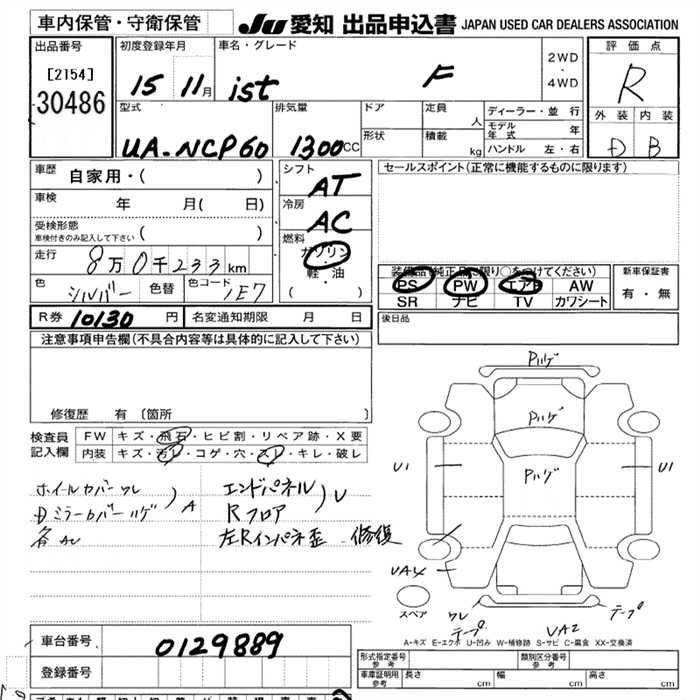 車内保管・守衛保管
JU 愛知 出品申込書 JAPAN USED CAR DEALERS ASSOCIATION
出品番号
[2154]
30486
初度登録年月
15 11月
車名・グレード
ist F
2WD
・
4WD
評価点
R
外装 内装
D B
型式
UA-NCP60
排気量
1300cc
ドア
形状
定員
人
積載
kg
ディーラー・並行
モデル年式 年
ハンドル 左・右
車歴
自家用・( )
車検
年 月( 日)
受検形態
車検付きのみ記入して下さい ( )
走行
8万0千233km
色
シルバー
色替
色コード
1E7
シフト
AT
冷房
AC
燃料
ガソリン
軽・油
( )
セールスポイント(正常に機能するものに限ります)
装備品(純正品に限り○をつけてください)
PS PW エアB AW
SR ナビ TV カワシート
新車保証書
有・無
R券 10130 円
名変通知期限 月 日
後日品
注意事項申告欄(不具合内容等は具体的に記入して下さい)
修復歴 有 〔箇所 〕
検査員
記入欄
FW キズ・飛石・ヒビ割・リペア跡・X要
内装 キズ・汚レ・コゲ・穴・スレ・キレ・破レ
ホイールカバーワレ
Dミラーカバーハゲ
A
各AU
エンドパネル
Rフロア
U
左Rインパネ歪 修復
Pハゲ
Pハゲ
Pハゲ
U1
U1
UA4
スペア
ワレ
テープ
UA2
テープ
A-キズ E-エクボ U-凹み W-補修跡 S-サビ C-腐食 XX-交換済
車台番号
0129889
登録番号
形式指定番号
参考
類別区分番号
参考
車庫証明用
参考
長さ cm
幅 cm
高さ cm